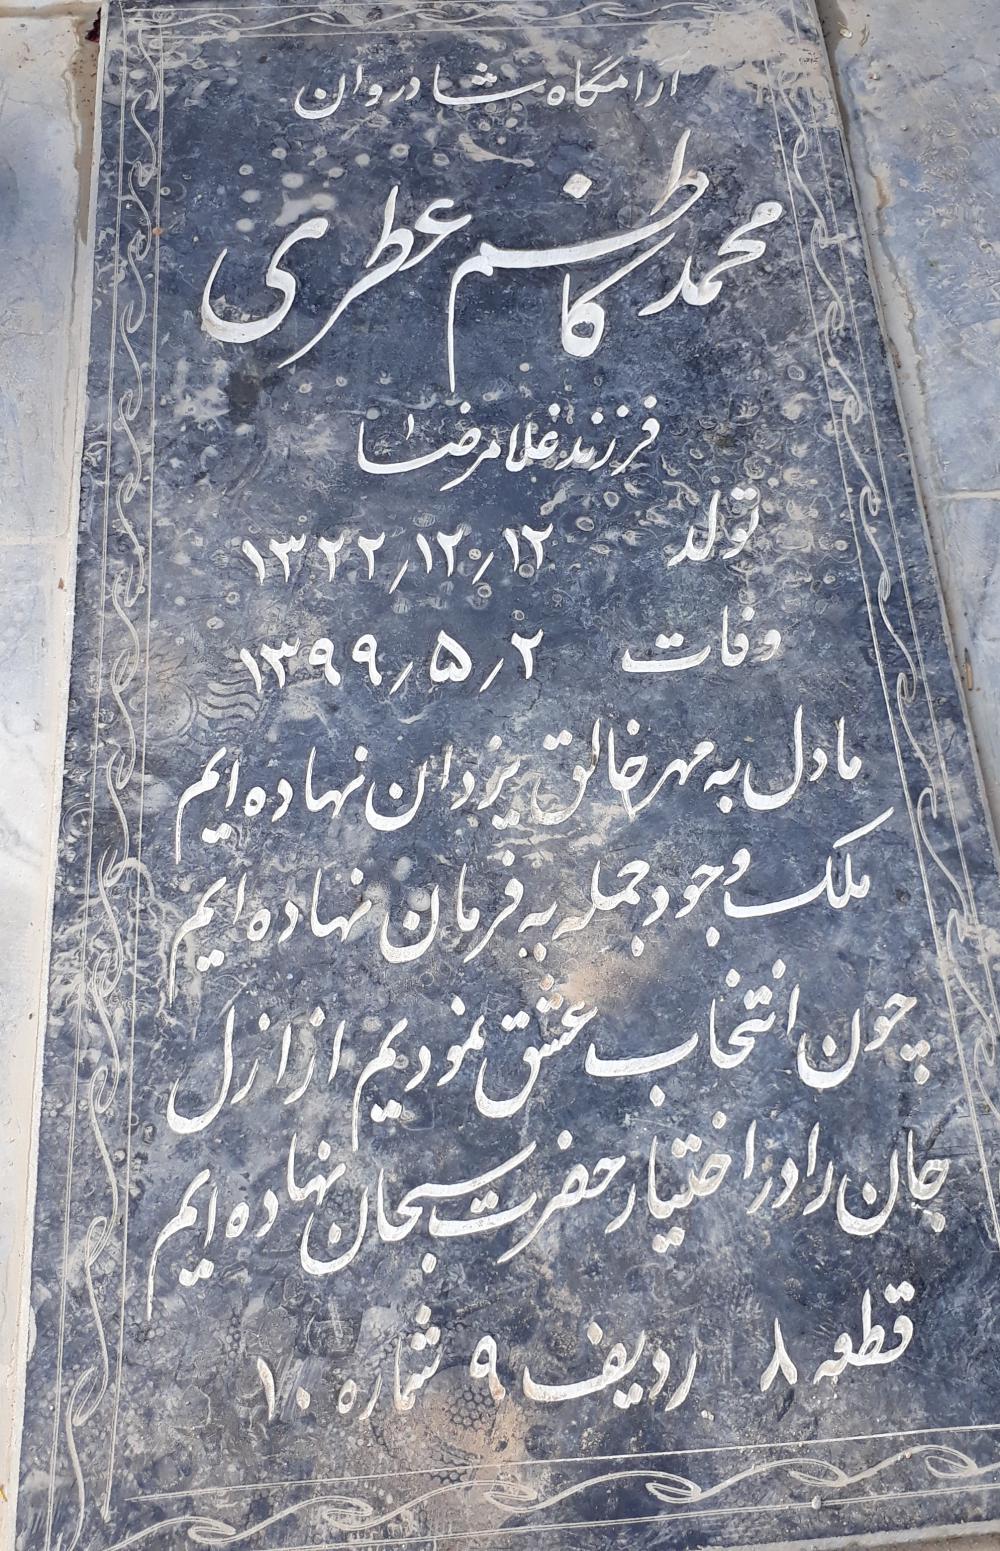 ارامگاه شادروان
محمد کاظم عطری
فرزند غلامرضا
تولد ۱۲/۱۲/۱۳۲۲
وفات ۲/۵/۱۳۹۹
ما دل به مهر خالق یزدان نهاده ایم
ملک وجود جمله به فرمان نهاده ایم
چون انتخاب عشق نمودیم از ازل
جان را در اختیار حضرت سبحان نهاده ایم
قطعه ۸ ردیف ۹ شماره ۱۰